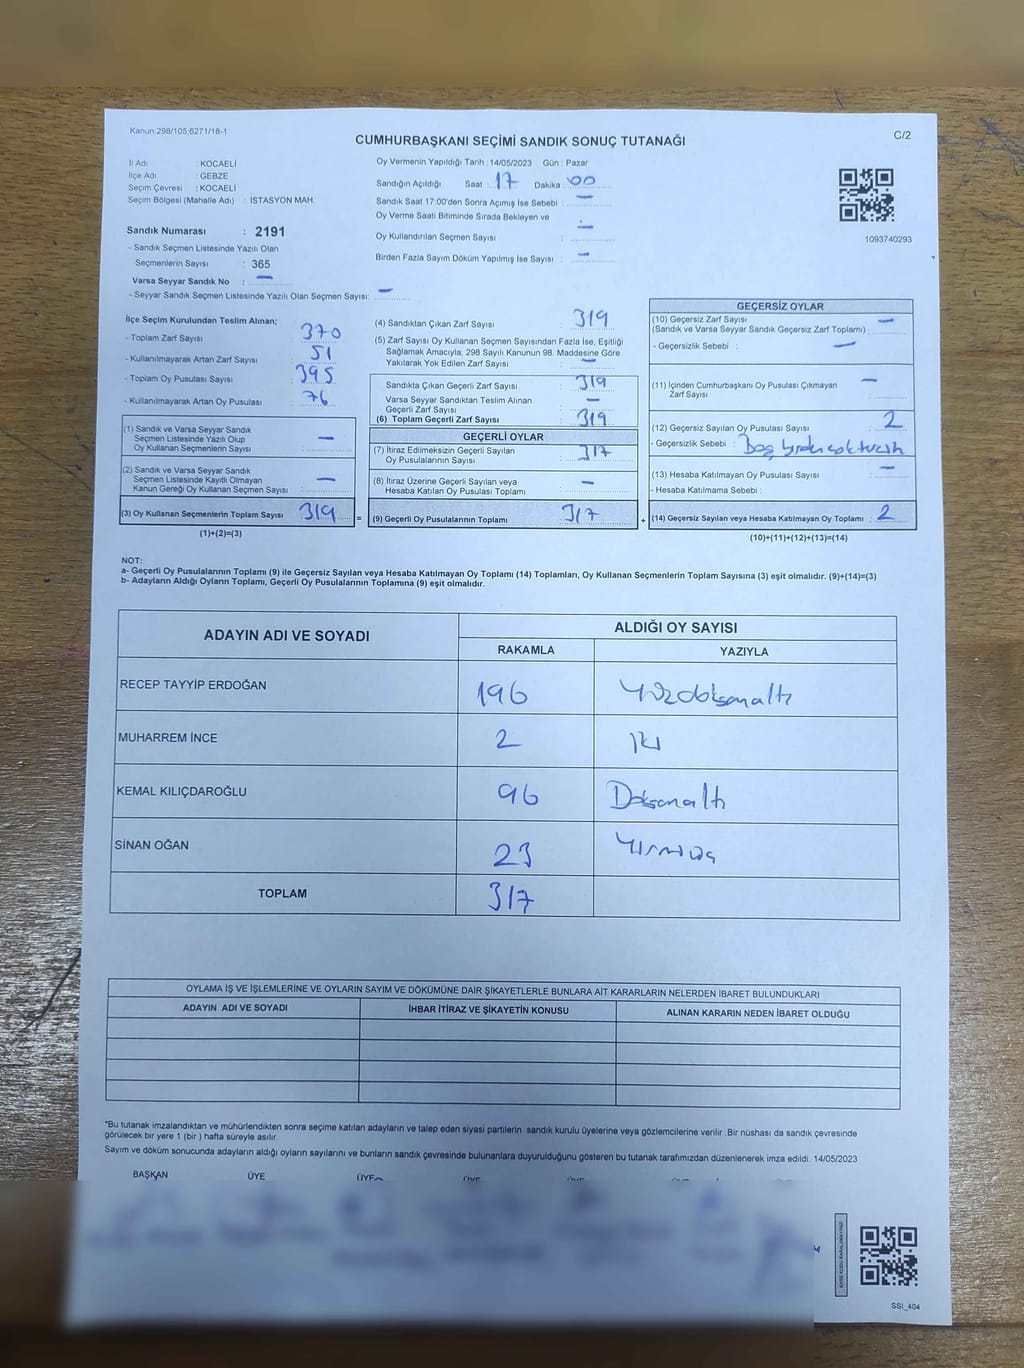 Kanun.298/105,6271/18-1
CUMHURBAŞKANI SEÇİMİ SANDIK SONUÇ TUTANAĞI
C/2
İl Adı : KOCAELİ
İlçe Adı : GEBZE
Seçim Çevresi : KOCAELİ
Seçim Bölgesi (Mahalle Adı) : İSTASYON MAH.
Oy Vermenin Yapıldığı Tarih : 14/05/2023 Gün : Pazar
Sandığın Açıldığı Saat : 17 Dakika : 00
Sandık Saat 17:00'den Sonra Açımış İse Sebebi : —
Oy Verme Saati Bitiminde Sırada Bekleyen ve
Oy Kullandırılan Seçmen Sayısı : —
Birden Fazla Sayım Döküm Yapılmış İse Sayısı : —
1093740293
Sandık Numarası : 2191
- Sandık Seçmen Listesinde Yazılı Olan
Seçmenlerin Sayısı : 365
Varsa Seyyar Sandık No : —
- Seyyar Sandık Seçmen Listesinde Yazılı Olan Seçmen Sayısı: —
İlçe Seçim Kurulundan Teslim Alınan;
- Toplam Zarf Sayısı : 370
- Kullanılmayarak Artan Zarf Sayısı : 51
- Toplam Oy Pusulası Sayısı : 395
- Kullanılmayarak Artan Oy Pusulası : 76
(1) Sandık ve Varsa Seyyar Sandık
Seçmen Listesinde Yazılı Olup
Oy Kullanan Seçmenlerin Sayısı : —
(2) Sandık ve Varsa Seyyar Sandık
Seçmen Listesinde Kayıtlı Olmayan
Kanun Gereği Oy Kullanan Seçmen Sayısı : —
(3) Oy Kullanan Seçmenlerin Toplam Sayısı : 319 =
(1)+(2)=(3)
(4) Sandıktan Çıkan Zarf Sayısı : 319
(5) Zarf Sayısı Oy Kullanan Seçmen Sayısından Fazla İse, Eşitliği
Sağlamak Amacıyla, 298 Sayılı Kanunun 98. Maddesine Göre
Yakılarak Yok Edilen Zarf Sayısı : —
Sandıkta Çıkan Geçerli Zarf Sayısı : 319
Varsa Seyyar Sandıktan Teslim Alınan
Geçerli Zarf Sayısı : —
(6) Toplam Geçerli Zarf Sayısı : 319
GEÇERLİ OYLAR
(7) İtiraz Edilmeksizin Geçerli Sayılan
Oy Pusulalarının Sayısı : 317
(8) İtiraz Üzerine Geçerli Sayılan veya
Hesaba Katılan Oy Pusulası Toplamı : —
(9) Geçerli Oy Pusulalarının Toplamı : 317 +
GEÇERSİZ OYLAR
(10) Geçersiz Zarf Sayısı
(Sandık ve Varsa Seyyar Sandık Geçersiz Zarf Toplamı) : —
- Geçersizlik Sebebi : —
(11) İçinden Cumhurbaşkanı Oy Pusulası Çıkmayan
Zarf Sayısı : —
(12) Geçersiz Sayılan Oy Pusulası Sayısı : 2
- Geçersizlik Sebebi : Boş
(13) Hesaba Katılmayan Oy Pusulası Sayısı : —
- Hesaba Katılmama Sebebi :
(14) Geçersiz Sayılan veya Hesaba Katılmayan Oy Toplamı : 2
(10)+(11)+(12)+(13)=(14)
NOT:
a- Geçerli Oy Pusulalarının Toplamı (9) ile Geçersiz Sayılan veya Hesaba Katılmayan Oy Toplamı (14) Toplamları, Oy Kullanan Seçmenlerin Toplam Sayısına (3) eşit olmalıdır. (9)+(14)=(3)
b- Adayların Aldığı Oyların Toplamı, Geçerli Oy Pusulalarının Toplamına (9) eşit olmalıdır.
ADAYIN ADI VE SOYADI
ALDIĞI OY SAYISI
RAKAMLA YAZIYLA
RECEP TAYYİP ERDOĞAN 196 Yüzdoksanaltı
MUHARREM İNCE 2 İki
KEMAL KILIÇDAROĞLU 96 Doksanaltı
SİNAN OĞAN 23 Yirmiüç
TOPLAM 317
OYLAMA İŞ VE İŞLEMLERİNE VE OYLARIN SAYIM VE DÖKÜMÜNE DAİR ŞİKAYETLERLE BUNLARA AİT KARARLARIN NELERDEN İBARET BULUNDUKLARI
ADAYIN ADI VE SOYADI İHBAR İTİRAZ VE ŞİKAYETİN KONUSU ALINAN KARARIN NEDEN İBARET OLDUĞU
"Bu tutanak imzalandıktan ve mühürlendikten sonra seçime katılan adayların ve talep eden siyasi partilerin sandık kurulu üyelerine veya gözlemcilerine verilir. Bir nüshası da sandık çevresinde
görülecek bir yere 1 (bir) hafta süreyle asılır.
Sayım ve döküm sonucunda adayların aldığı oyların sayılarını ve bunların sandık çevresinde bulunanlara duyurulduğunu gösteren bu tutanak tarafımızdan düzenlenerek imza edildi. 14/05/2023
BAŞKAN ÜYE ÜYE ÜYE
SSI_404